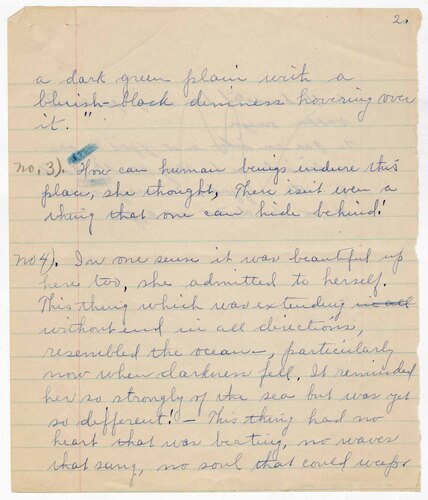 2.
a dark green plain with a
bluish-black dimness hovering over
it."
no. 3). How can human beings endure this
place, she thought, There isn't even a
thing that one can hide behind!
no 4). In one sense it was beautiful up
here too, she admitted to herself.
This thing which was extending in all
without end in all directions,
resembled the ocean—, particularly
now when darkness fell. It reminded
her so strongly of the sea but was yet
so different! – This thing had no
heart that was beating, no waves
that sang, no soul that could weep.